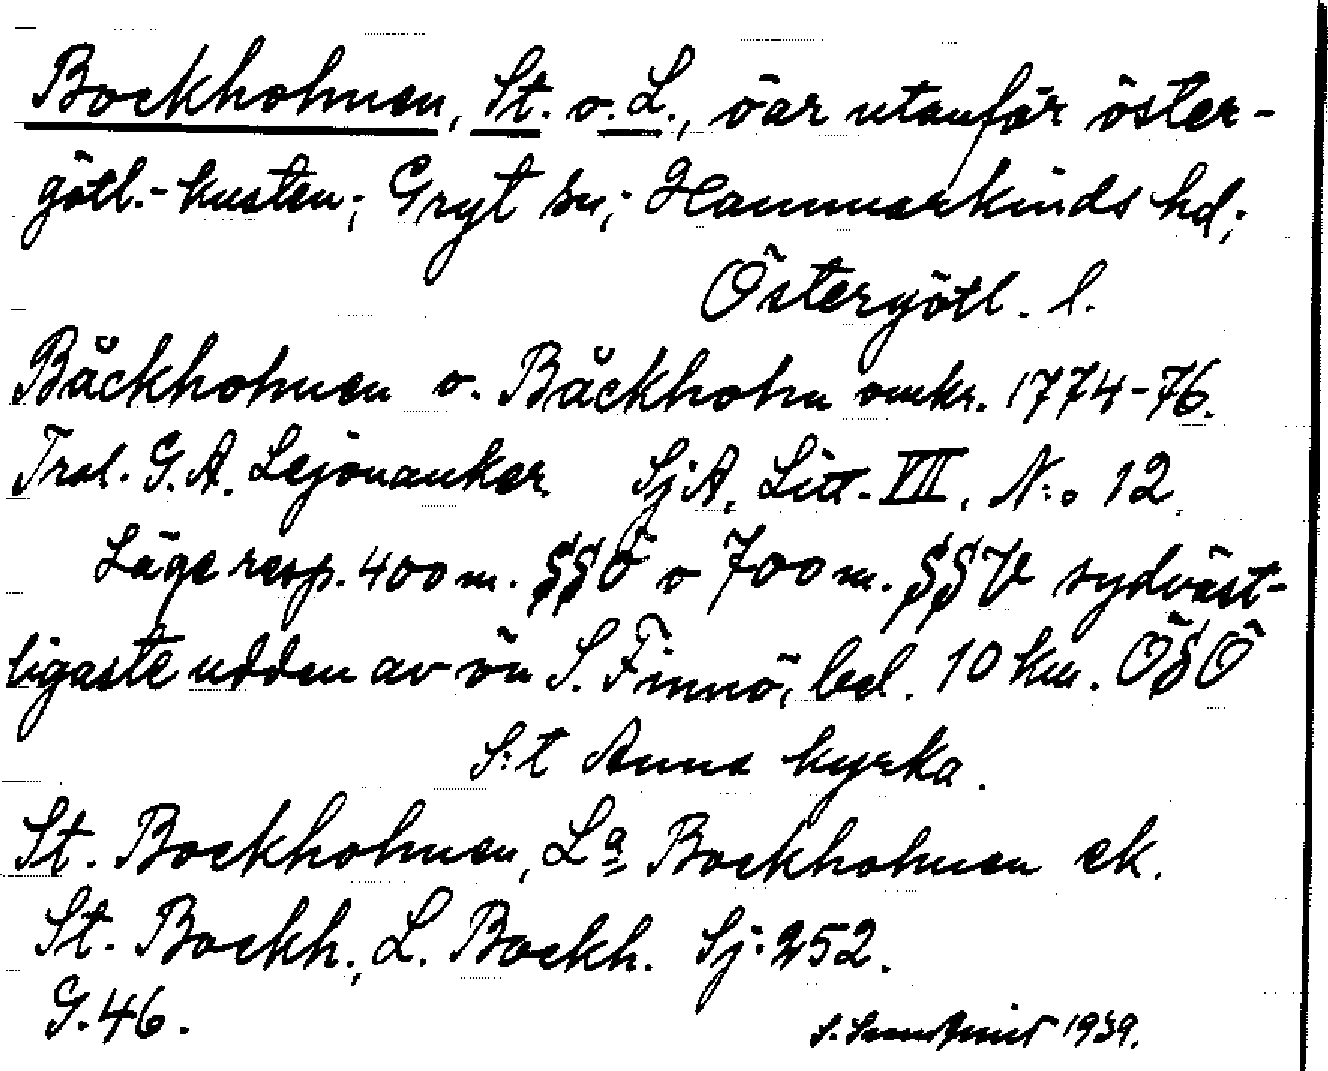 Bockholmen, St. o. L., öar utanför öster-
götl.-kusten; Gryt sn; Hammarkinds hd;
Östergötl. l.
Båckholmen o. Båckholm omkr. 1774-76.
Trol. G. A. Lejonanker SjA, Litt. VII, N:o 12.
Läge resp. 400 m. SSÖ o 700 m. SSV sydväst-
ligaste udden av ön S. Finnö, bel. 10 km. ÖSÖ
S:t Anna kyrka.
St. Bockholmen, La Bockholmen ek.
St. Bockh., L. Bockh. Sj. 252.
G. 46.
S. 1939.